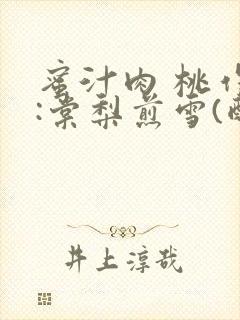 蜜汁肉桃作
:棠梨煎雪(酥
井上淳哉